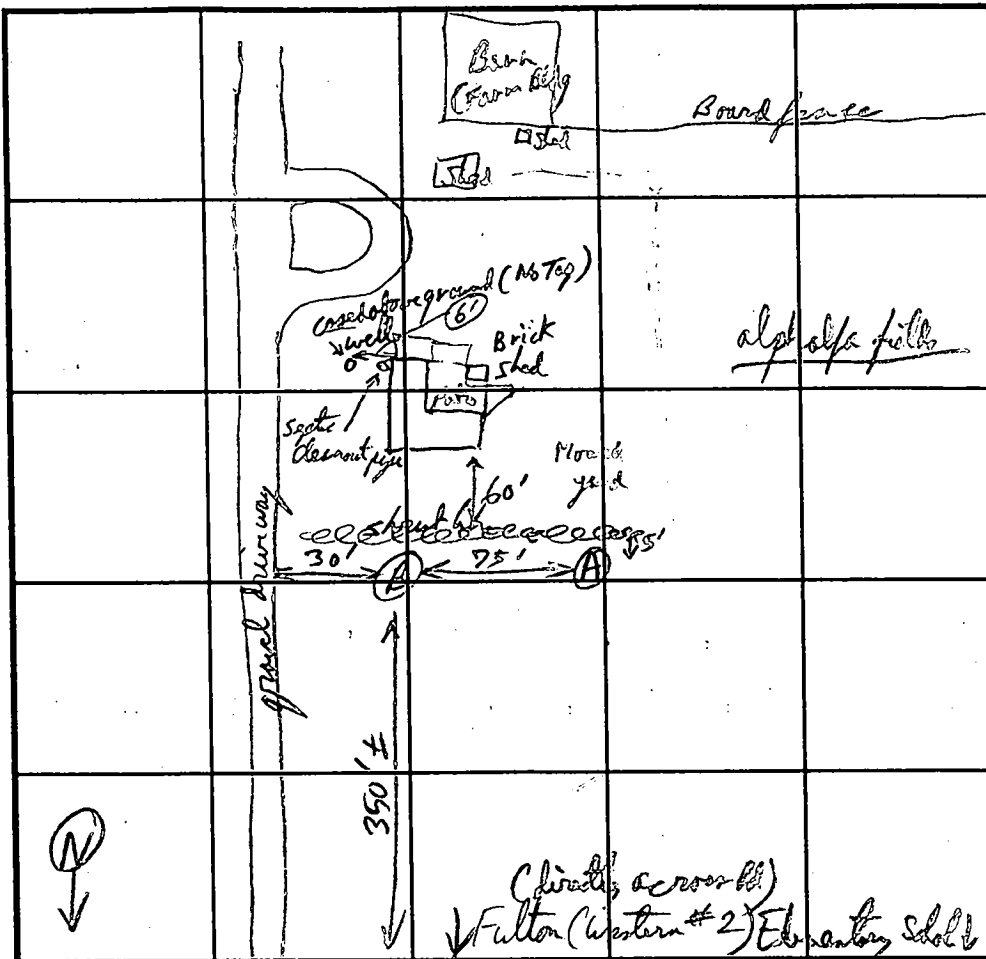 Barn
(Farm Bldg
Board fence
shed
Shed
cased above ground (No Tag)
well
6'
Brick
shed
alphalfa fields
Patio
septic
cleanout pipe
Mowed
yard
60'
shrub
30'
75'
5'
A
gravel driveway
350' ±
N
(directly across Rd)
Fulton (Western #2) Elementary School